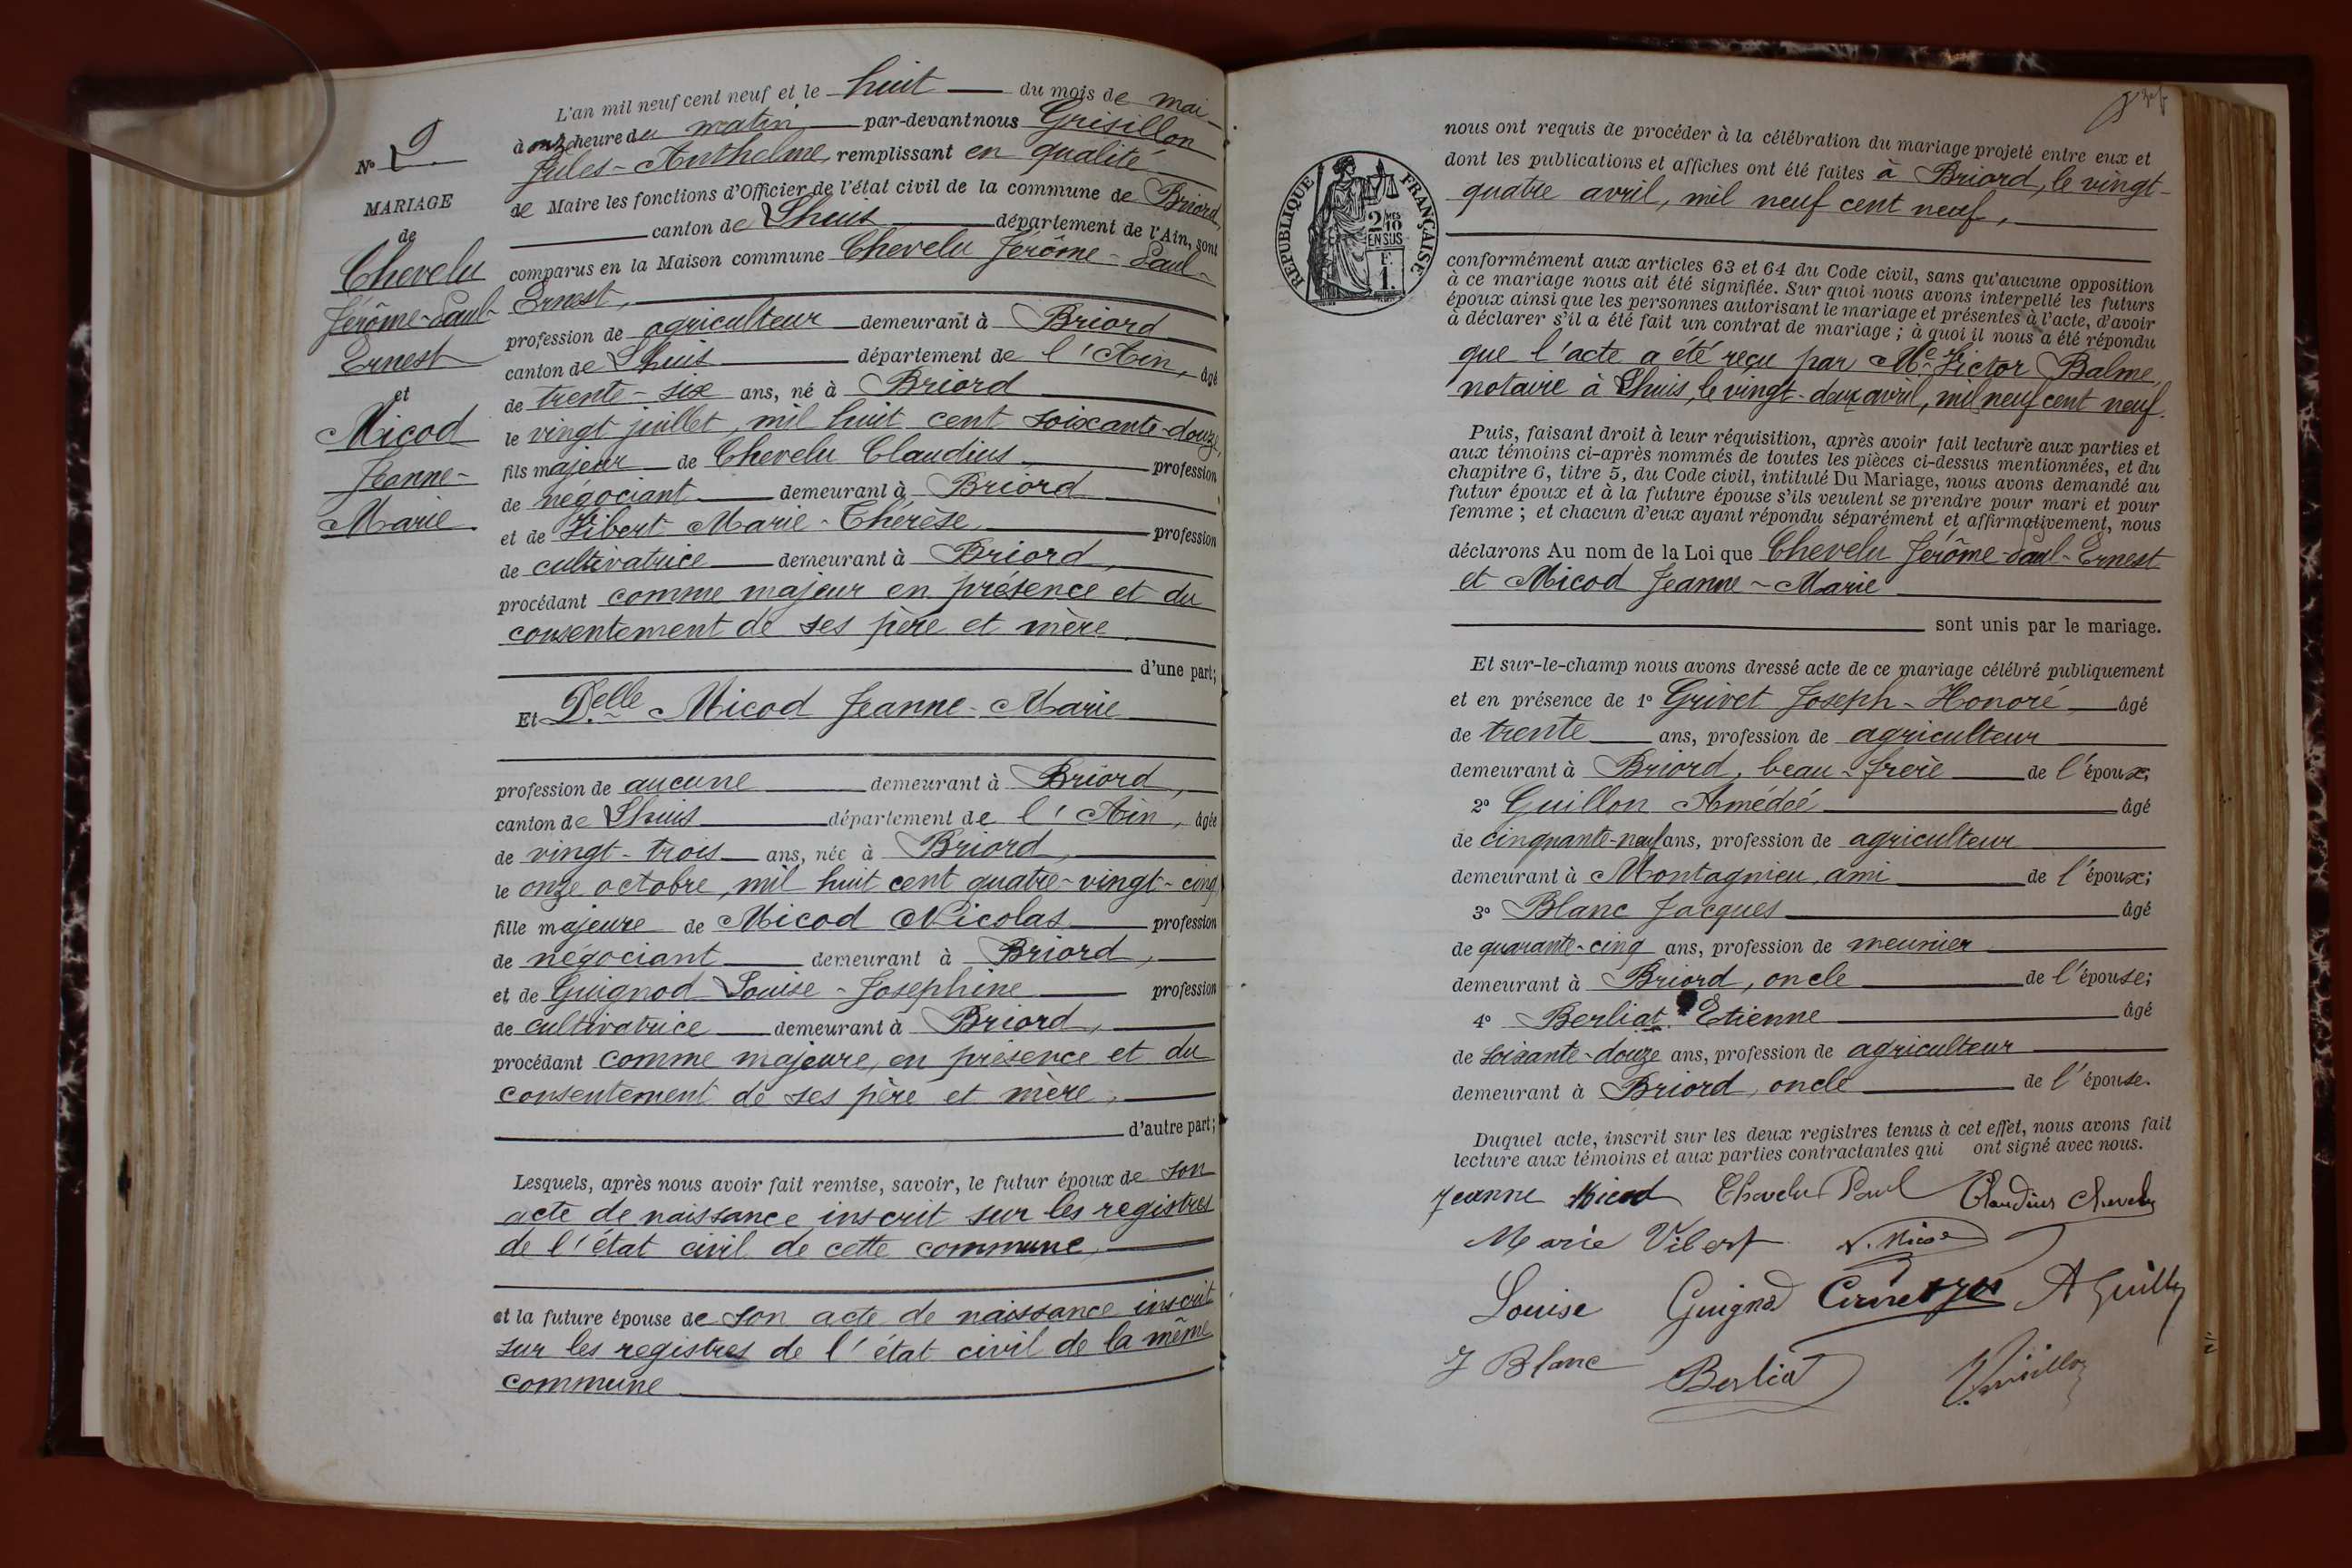 N° 9
MARIAGE
de
Chevelu
Jérôme-Paul-
Ernest
et
Micod
Jeanne-
Marie
L'an mil neuf cent neuf et le huit du mois de mai
à onze heure du matin par-devant nous Grisillon
Jules-Anthelme, remplissant en qualité
de Maire les fonctions d'Officier de l'état civil de la commune de Briord,
canton de Lhuis département de l'Ain, sont
comparus en la Maison commune Chevelu Jérôme-Paul-
Ernest,
profession de agriculteur demeurant à Briord
canton de Lhuis département de l'Ain, âgé
de trente-six ans, né à Briord
le vingt juillet, mil huit cent soixante-douze,
fils majeur de Chevelu Claudius profession
de négociant demeurant à Briord
et de Vibert Marie-Thérèse profession
de cultivatrice demeurant à Briord,
procédant comme majeur en présence et du
consentement de ses père et mère
d'une part;
Et Delle Micod Jeanne-Marie
profession de aucune demeurant à Briord,
canton de Lhuis département de l'Ain, âgée
de vingt-trois ans, née à Briord,
le onze octobre, mil huit cent quatre-vingt-cinq
fille majeure de Micod Nicolas profession
de négociant demeurant à Briord,
et de Guignod Louise-Josephine profession
de cultivatrice demeurant à Briord,
procédant comme majeure, en présence et du
consentement de ses père et mère,
d'autre part;
Lesquels, après nous avoir fait remise, savoir, le futur époux de son
acte de naissance inscrit sur les registres
de l'état civil de cette commune,
et la future épouse de son acte de naissance inscrit
sur les registres de l'état civil de la même
commune
RÉPUBLIQUE FRANÇAISE
2 MES
10
EN SUS
F.
1.
nous ont requis de procéder à la célébration du mariage projeté entre eux et
dont les publications et affiches ont été faites à Briord, le vingt-
quatre avril, mil neuf cent neuf,
conformément aux articles 63 et 64 du Code civil, sans qu'aucune opposition
à ce mariage nous ait été signifiée. Sur quoi nous avons interpellé les futurs
époux ainsi que les personnes autorisant le mariage et présentes à l'acte, d'avoir
à déclarer s'il a été fait un contrat de mariage ; à quoi il nous a été répondu
que l'acte a été reçu par Me Victor Balme,
notaire à Lhuis, le vingt-deux avril, mil neuf cent neuf.
Puis, faisant droit à leur réquisition, après avoir fait lecture aux parties et
aux témoins ci-après nommés de toutes les pièces ci-dessus mentionnées, et du
chapitre 6, titre 5, du Code civil, intitulé Du Mariage, nous avons demandé au
futur époux et à la future épouse s'ils veulent se prendre pour mari et pour
femme ; et chacun d'eux ayant répondu séparément et affirmativement, nous
déclarons Au nom de la Loi que Chevelu Jérôme-Paul-Ernest
et Micod Jeanne-Marie
sont unis par le mariage.
Et sur-le-champ nous avons dressé acte de ce mariage célébré publiquement
et en présence de 1° Grivet Joseph-Honoré âgé
de trente ans, profession de agriculteur
demeurant à Briord, beau-frère de l'époux;
2° Guillon Amédéé âgé
de cinquante-neuf ans, profession de agriculteur
demeurant à Montagnieu, ami de l'époux;
3° Blanc Jacques âgé
de quarante-cinq ans, profession de meunier
demeurant à Briord, oncle de l'épouse;
4° Berliat Etienne âgé
de soixante-douze ans, profession de agriculteur
demeurant à Briord, oncle de l'épouse.
Duquel acte, inscrit sur les deux registres tenus à cet effet, nous avons fait
lecture aux témoins et aux parties contractantes qui ont signé avec nous.
Jeanne Micod Chevelu Paul Claudius Chevelu
Marie Vibert N. Micod
Louise Guignod A Guillon
J Blanc Berliat